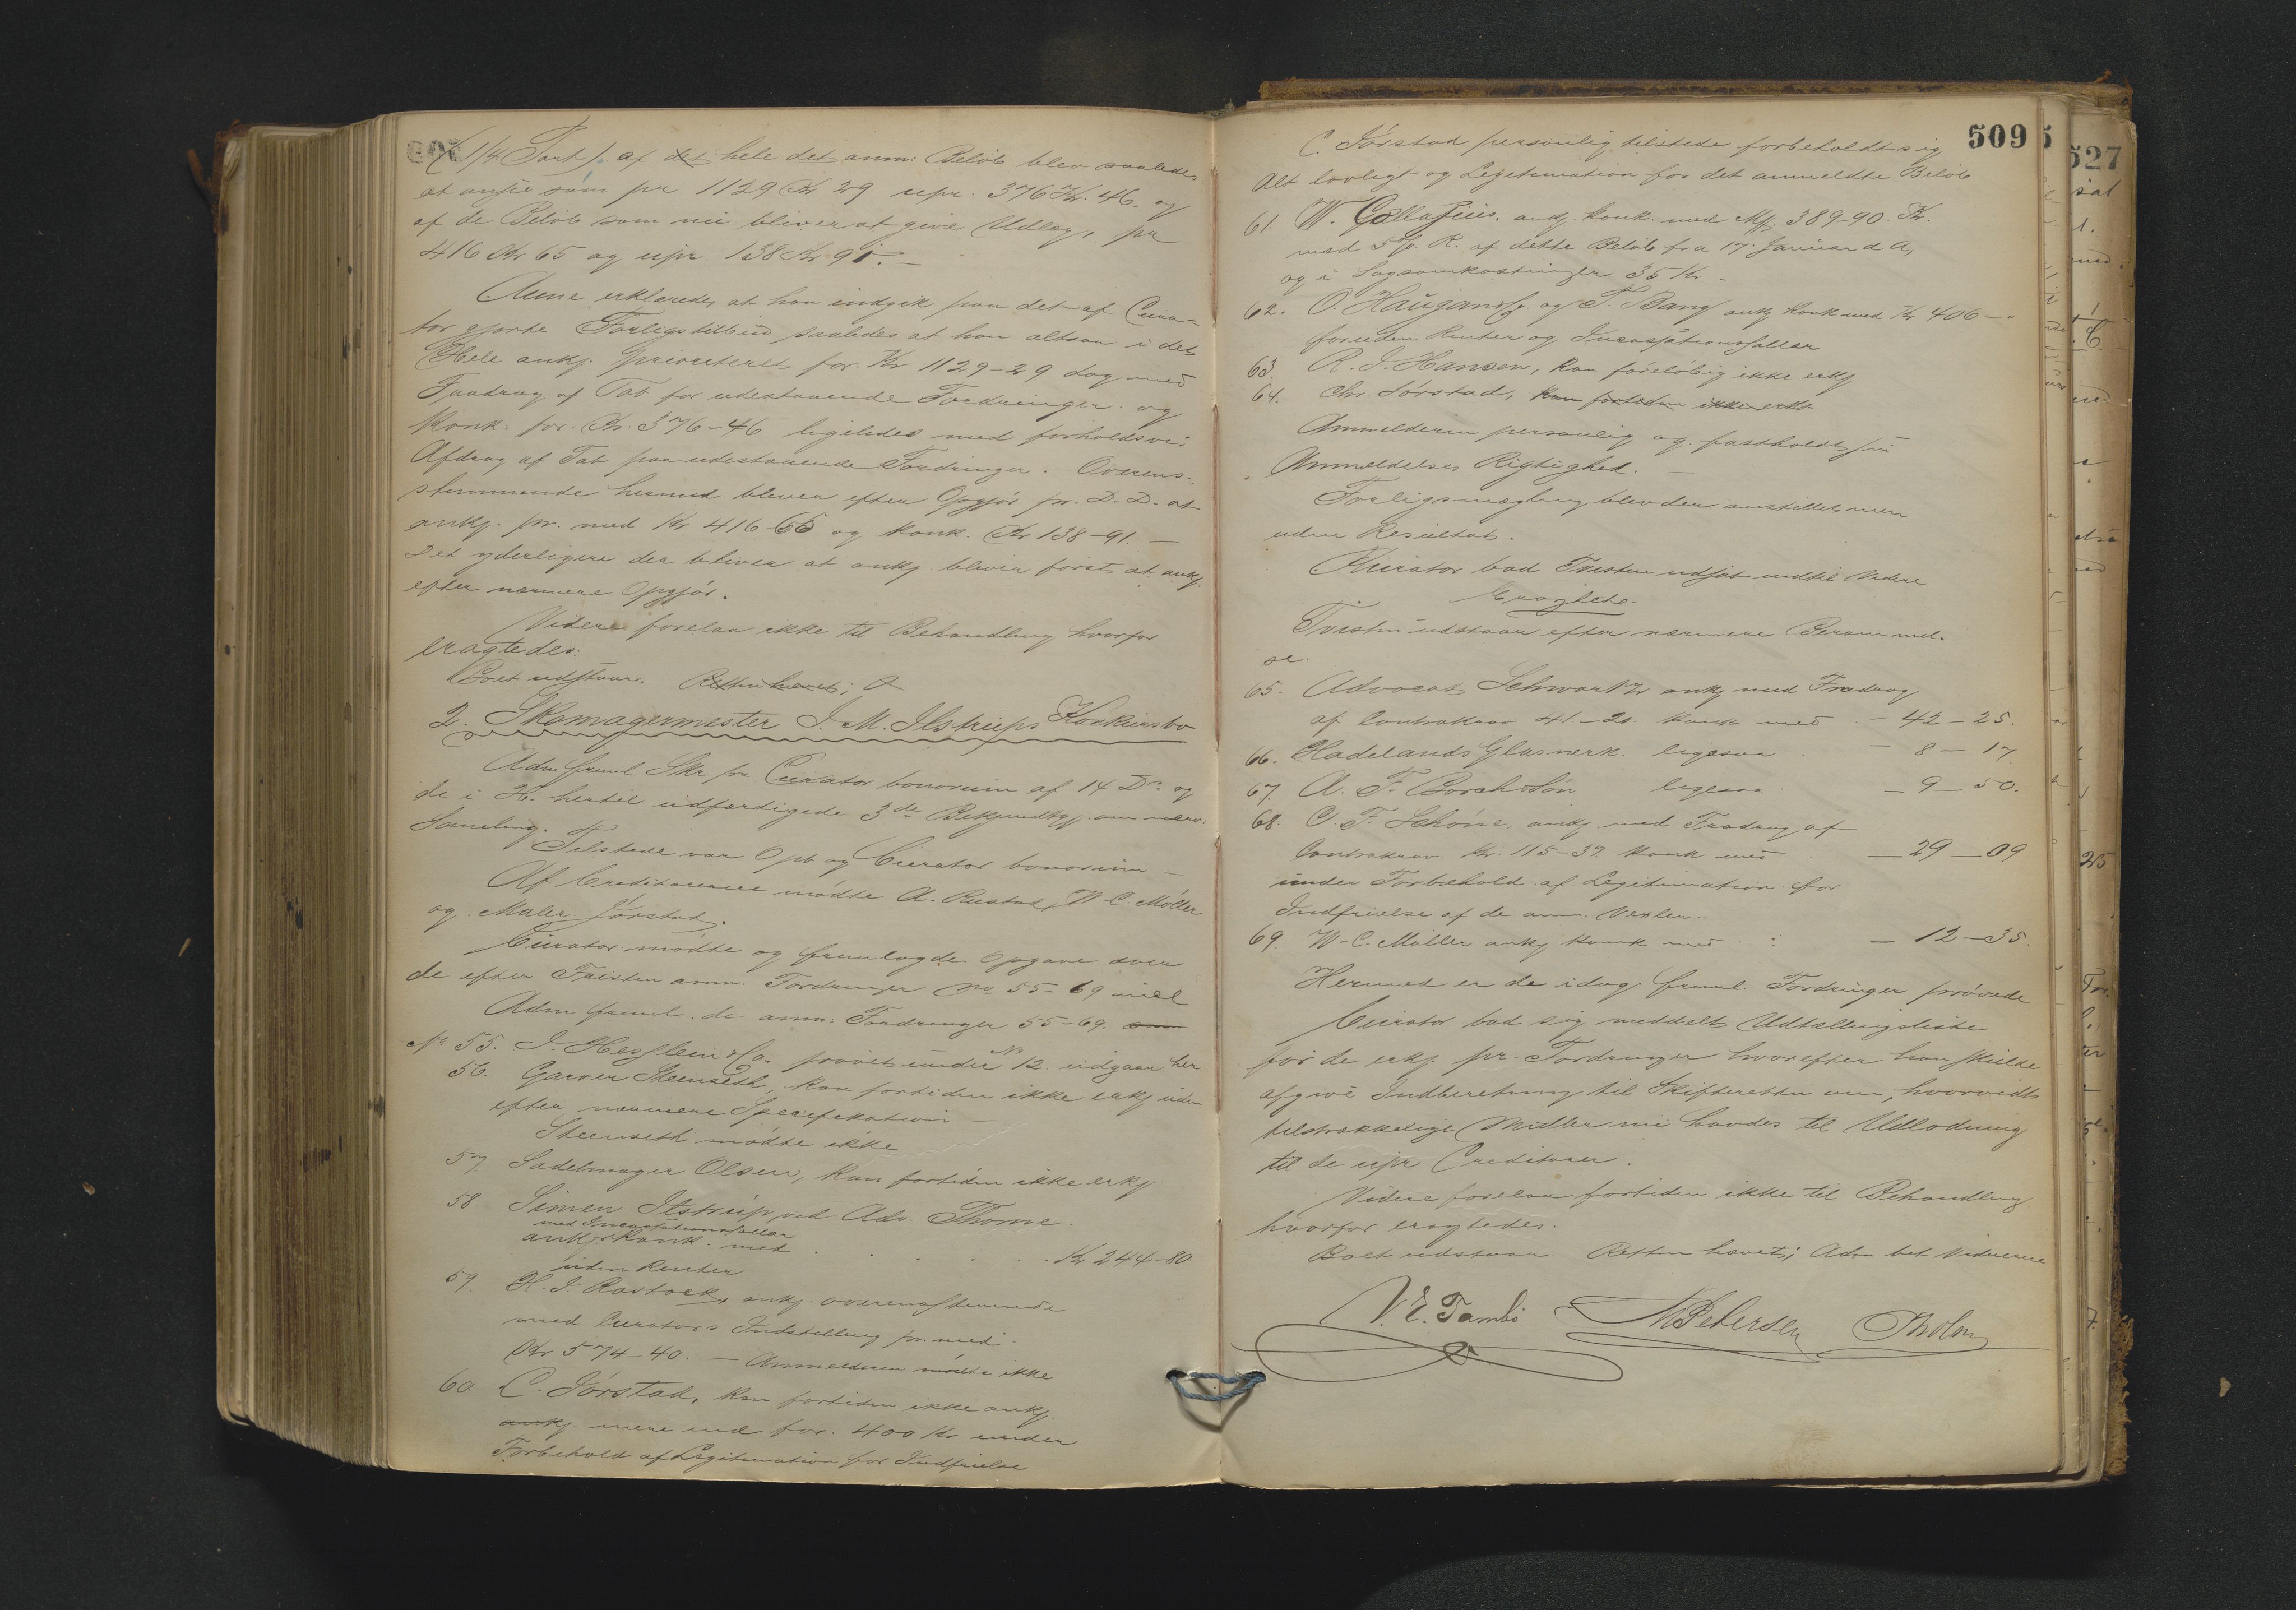 (1/4 Part) af det hele det anm. Beløb blev saaledes
at ansee som pr 1129 Kr 29 upr. 376 Kr. 46. og
af de Beløb som nu bliver at give Udlæg, pr
416 Kr 65 og upr. 138 Kr 91. —
Aune erklærede, at han indgik paa det af Cura-
tor gjorte Forligstilbud saaledes at han altsaa i det
Hele ankj. prioriteret for Kr 1129-29 dog med
Fradrag af Tab for udestaaende Fordringer og
Konk. for Kr. 376-46 ligeledes med forholdsvis
Afdrag af Tab paa udestaaende Fordringer. Overens-
stemmende hermed bliver efter Opgjør pr. D.D. at
ankj. pr. med Kr 416-65 og konk. Kr 138-91. —
Det yderligere der bliver at ankj. bliver først at ankj.
efter nærmere Opgjør.
Videre forelaa ikke til Behandling hvorfor
eragtedes:
Boet udstaar. Retten hævet;
2. Skomagermester J. M. Ilstrups Konkursbo
Adm freml Skr fra Curator bonorum af 14 Ds og
de i H. hertil udfærdigede 3de Bekjendtgj. om nærv:
Samling.
Tilstede var Opb og Curator bonorum —
Af Creditorerne mødte A. Rustad, W. C. Møller
og Maler Jørstad.
Curator mødte og fremlagde Opgave over
de efter Fristen anm. Fordringer No 55-69 incl
Adm freml. de anm: Fordringer 55-69. som
No 55. J. Hesslein & Co. prøvet under No 12. udgaar her
56. Garver Steenseth, kan fortiden ikke erkj uden
efter nærmere Specifikation —
Steenseth mødte ikke
57. Sadelmager Olsen, kan fortiden ikke erkj.
58. Simen Ilstrup ved Adv. Thome.
med Incassationssallær
ankj. konk. med . . . . . Kr 244-80
uden Renter
59 H. J. Rostock, ankj overensstemmende
med Curators Indstilling pr. med
Kr 574-40. — Anmelderen mødte ikke
60. C. Jørstad, kan fortiden ikke ankj.
ankj. mere end for 400 Kr under
Forbehold af Legitimation for Indfrielse
509
C. Jørstad personlig tilstede forbeholdt sig
Alt lovligt og Legitimation for det anmeldte Beløb
61. W. ankj. konk. med 389-90. Kr.
med 5% R. af dette Beløb fra 17. Januar d. A,
og i Sagsomkostninger 35 Kr —
62. O. Haugan og T. Bang ankj konk med Kr 406 —
foruden Renter og Incassationssallær
63 R. J. Hansen, kan foreløbig ikke erkj
64. Chr. Jørstad, kan fortiden ikke erkj
Anmelderen personlig og fastholdt sin
Anmeldelses Rigtighed. —
Forligsmægling blev den anstillet men
uden Resultat.
Curator bad Tvisten udsat indtil Videre
Eragtede.
Tvisten udstaar efter nærmere Berammel-
se.
65. Advocat Schwartz ankj med Fradrag
af Contrakrav 41-20. konk med — 42 — 25.
66. Hadelands Glasværk. ligesaa . — 8 — 17
67. A. F. Borch & Søn ligesaa . — 9 — 50.
68. C. F. Schøne, ankj. med Fradrag af
Contrakrav Kr. 115-37 konk med . — 29 — 09
under Forbehold af Legitimation for
Indfrielse af de anm. Vexler.
69. W. C. Møller ankj konk med : — 12 — 35.
Hermed er de idag freml. Fordringer prøvede
Curator bad sig meddelt Udtællingsliste
for de erkj. pr. Fordringer hvorefter han skulde
afgive Indberetning til Skifteretten om, hvorvidt
tilstrækkelige Midler nu havdes til Udlodning
til de upr Creditorer.
Videre forelaa fortiden ikke til Behandling
hvorfor eragtedes.
Boet udstaar. Retten hævet; Adm bet. Vidnerne
V. E. Tambs N Pedersen Holm
527